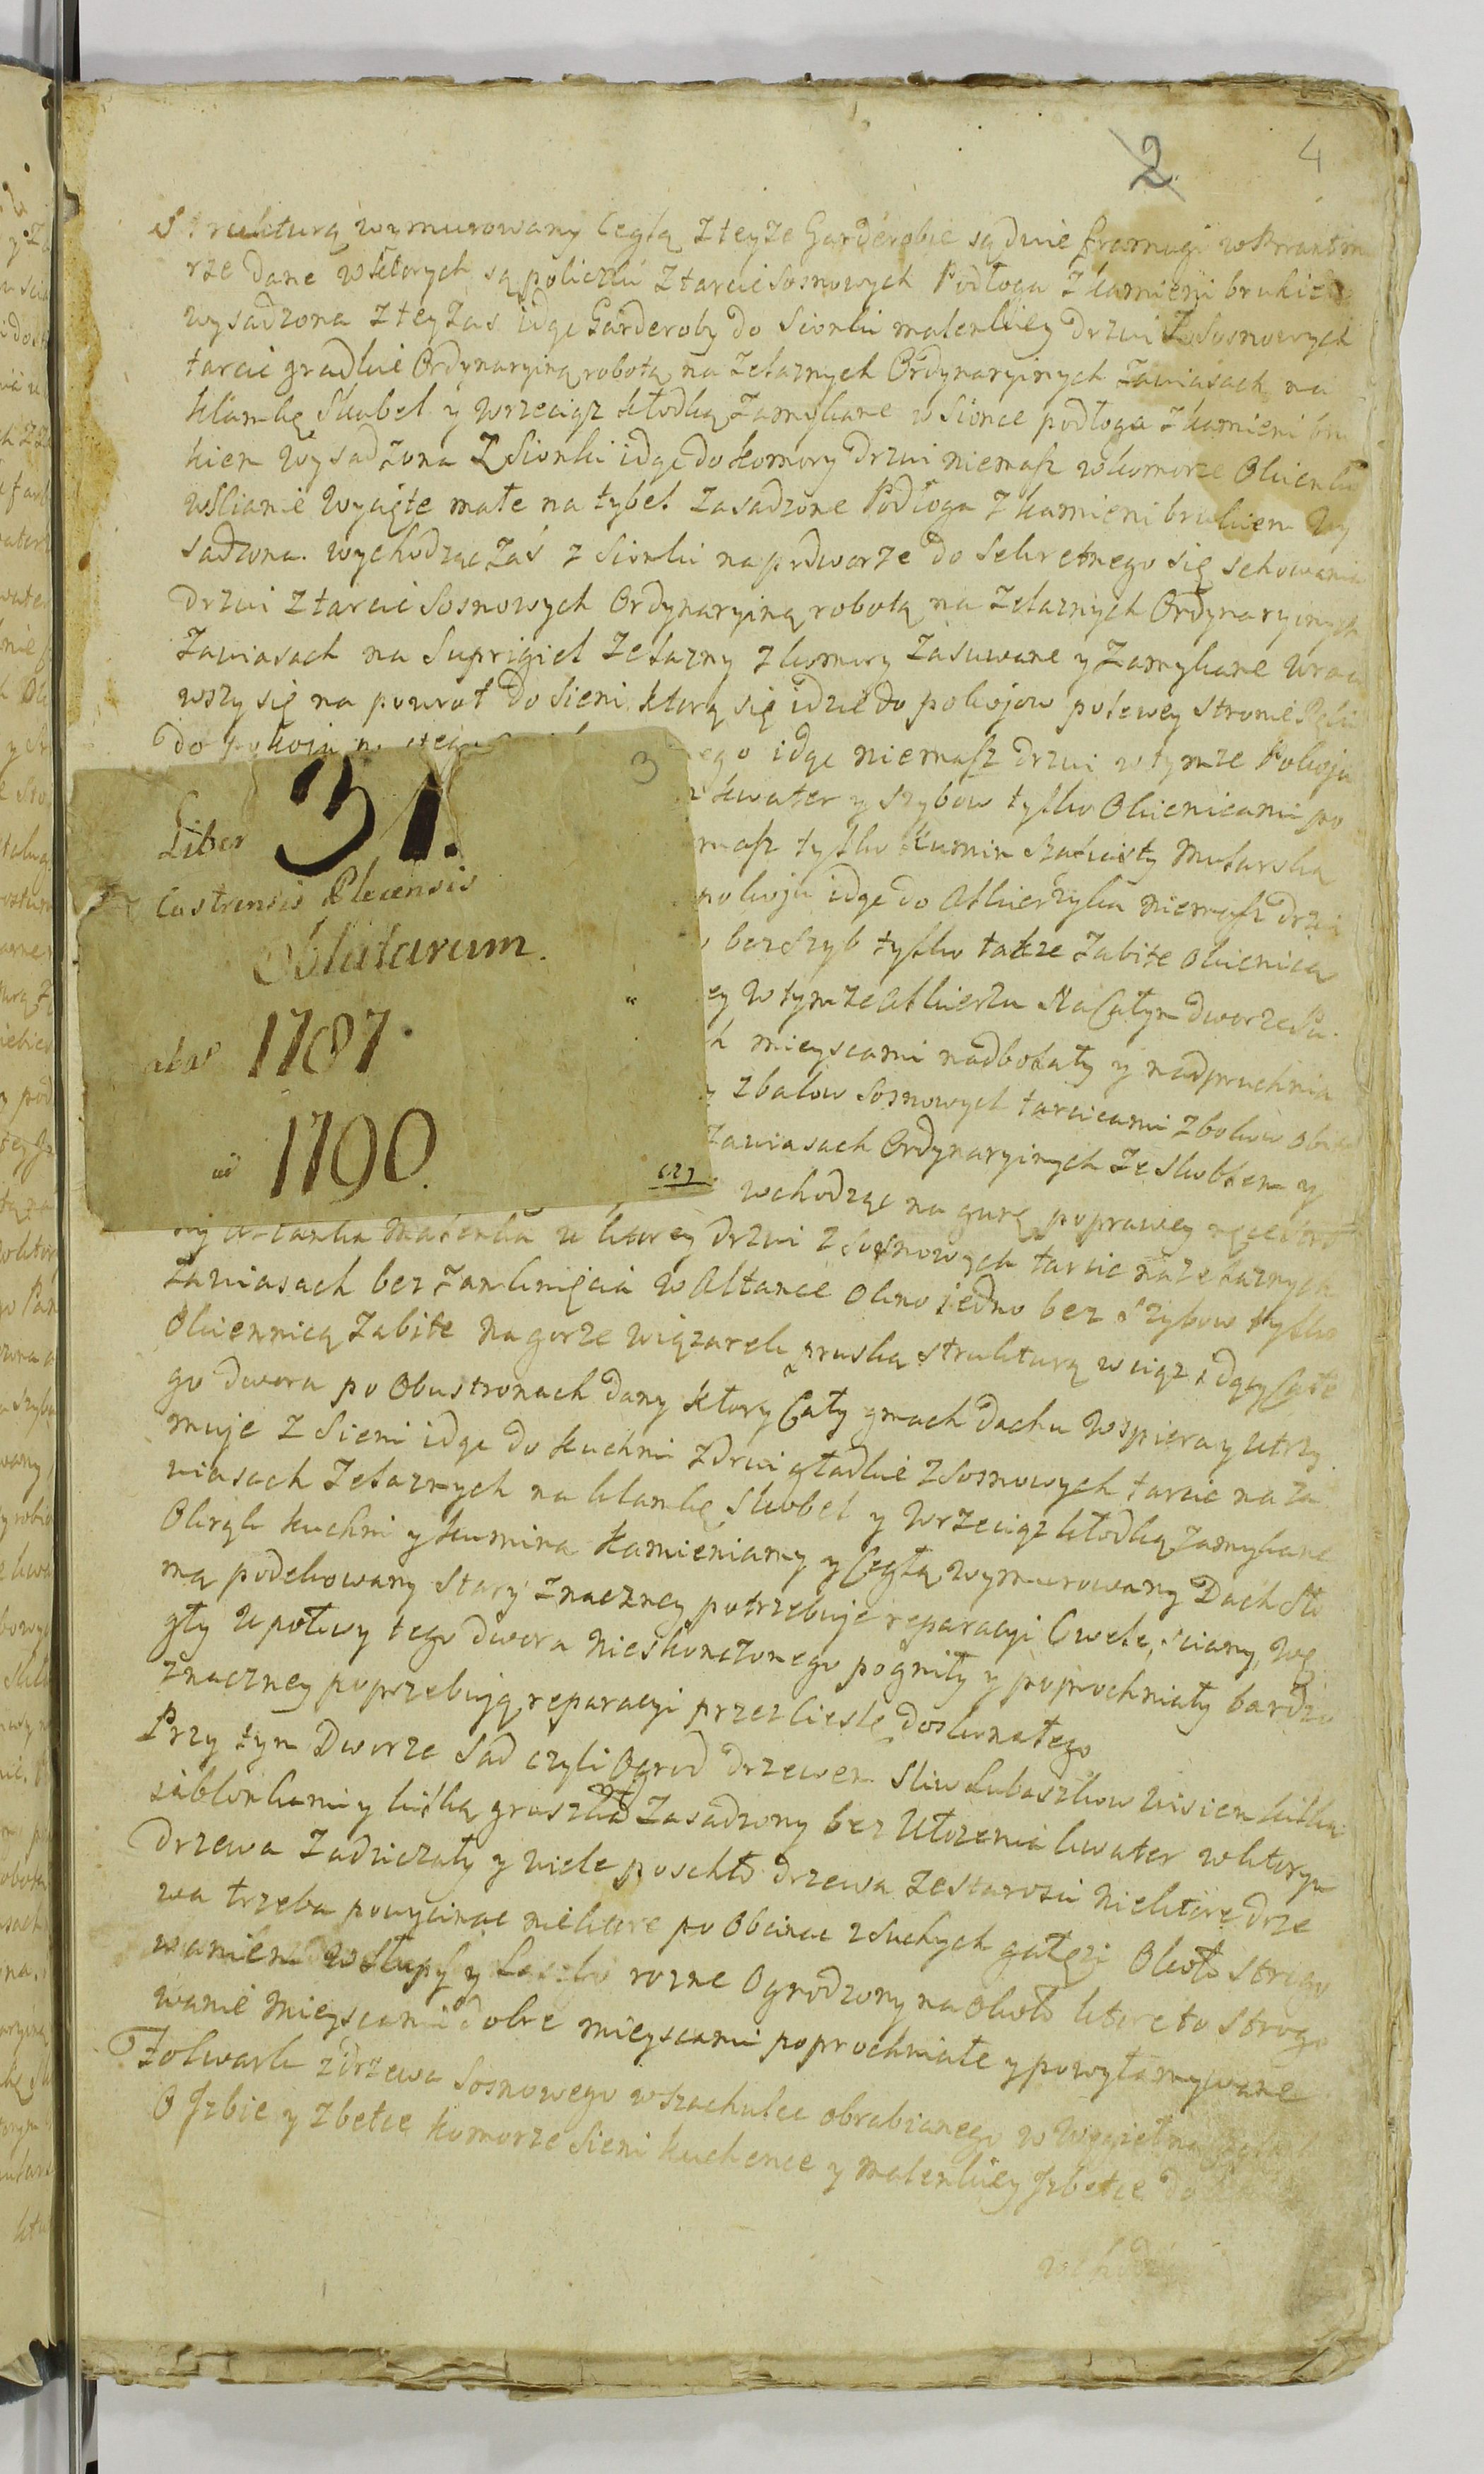 2 4
Strukturą wymurowany Cegłą z teyże Garderobie są dwie framugi w
rze dane w ktorych są policzki z tarcic Sosnowych Podłoga z kamieni brukiem
wysadzona z teyżas idąc Garderoby do Sionki malenkiey drzwi z Sosnowych
tarcic gradkie Ordynaryiną robotą na żelaznych Ordynaryinych zawiasach na
klamkę Skubel y wrzeciąz kłodką zamykane w Sionce podłoga z kamieni bru
kiem wysadzona Z Sionki idąc do komory drzwi niemasz w komorze Okienko
w scianie wyięte małe na tybel zasadzone Podłoga z kamieni brukiem wy
sadzona. wychodząc zaś z Sionki na podworze do Sekretnego się schowania
drzwi z tarcic Sosnowych Ordynaryiną robotą na żelaznych Ordynaryinych
zawiasach na Suprigiel żelazny z komory zasuwane y zamykane wraca
wszy się na powrot do Sieni ktorą się idzie do pokojow po lewey stronie Ręki
do pokoju idąc niemasz drzwi w tymze Pokoju
kwater y szybow tylko Okienicami po
masz tylko kumin Szafiasty Mularska
pokoju idąc do Alkierzyka niemasz drzwi
bez Szyb tylko takze zabite okienicą
ey w tymze Alkierzu Na Całym dworze Pu
h mieyscami nadbotały y nadpruchnia
z balow Sosnowych tarcicami z bokow obi
zawiasach Ordynaryinych ze Skoblem y
wchodząc na gurę po prawey ręce
ny Altanka Malenka u ktorey drzwi z Sosnowych tarcic na żelaznych
zawiasach bez zamknięcia w Altance Okno jedno bez Szybow tylko
Okiennicą zabite na gorze wiązarek pruską strukturą wciąz idący Całe
go dwora po Obu stronach dany ktory Cały gmach dachu wspiera y utrzy
muje z Sieni idąc do kuchni zdrwi gładkie z Sosnowych tarcic na za
wiasach żelaznych na klamkę Skobel y wrzeciąz kłodką zamykane
Okrąk kuchni y kumina kamieniamy y Cegłą wymurowany Dach Sło
mą podchowany stary znaczney potrzebuje reparacyi Cwele, sciany, wę
gły u połowy tego dwora Nieskonczonego pogniły y poprochniały bardzo
znaczney poprzebują reparacyi przez Cieslę doskonałego
Przy tym Dworze Sad czyli Ogrod drzewem Sliw Lubaszkow wisien kilką
jabłonkami y kilką gruszkamy zasadzony bez Ułozenia kwater w ktorym
drzewa zadziczały y wiele poschło drzewa ze starosci Niektore drze
wa trzeba powycinac niektore po Obcinac z suchych gałęzi Około strogo
waniem w Słupy y rozne Ogrodzony na około ktore to Strogo
wanie mieyscami dobre mieyscami poprochniałe y powyłamywane
Folwark z drzewa Sosnowego w szachulec obrabianego w węgieł
O Jzbie y zbetce komorze Sieni kuchence y malenkiey Jzbetce do
3
Liber 31.
Castrensis Plocensis
Oblatarum.
abas 1787.
ad 1790.